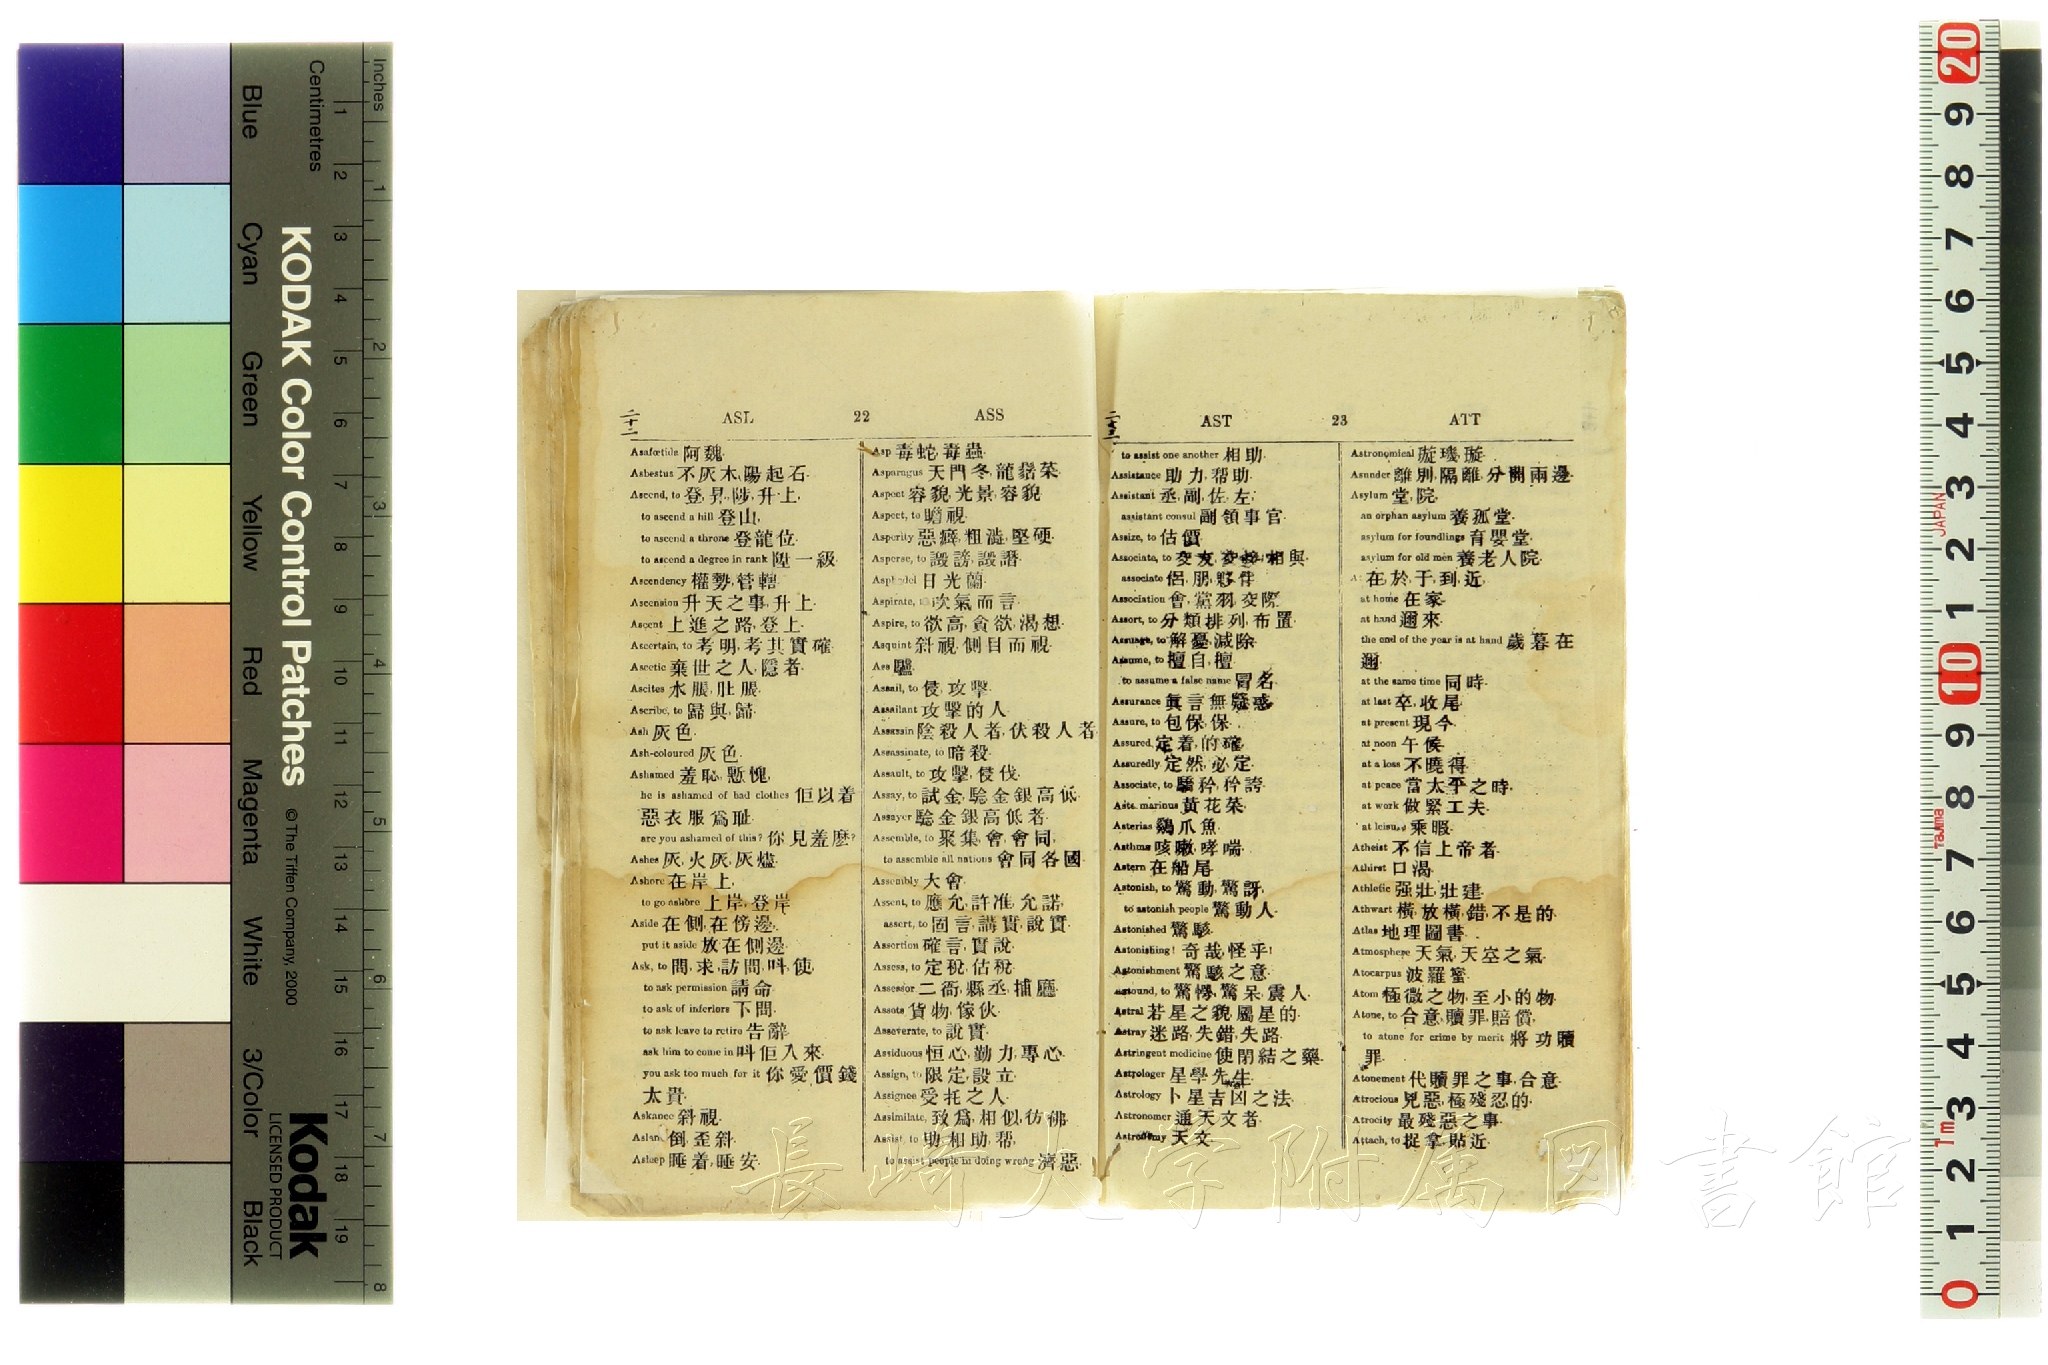 二十二 ASL 22 ASS
Asafœtida 阿魏.
Asbestus 不灰木, 陽起石.
Ascend, to 登, 昇, 陟, 升上.
to ascend a hill 登山,
to ascend a throne 登龍位.
to ascend a degree in rank 陞一級.
Ascendency 權勢, 管轄.
Ascension 升天之事, 升上.
Ascent 上進之路, 登上.
Ascertain, to 考明, 考其實確.
Ascetic 棄世之人, 隱者.
Ascites 水脹, 肚脹.
Ascribe, to 歸與, 歸.
Ash 灰色.
Ash-coloured 灰色.
Ashamed 羞恥, 慙愧,
he is ashamed of bad clothes 佢以着
惡衣服爲耻.
are you ashamed of this? 你見羞麽?
Ashes 灰, 火灰, 灰燼.
Ashore 在岸上,
to go ashore 上岸, 登岸
Aside 在側, 在傍邊.
put it aside 放在側邊.
Ask, to 問, 求, 訪問, 呌, 使,
to ask permission 請命.
to ask of inferiors 下問.
to ask leave to retire 告辭.
ask him to come in 呌佢入來.
you ask too much for it 你愛價錢
太貴.
Askance 斜視.
Aslant 倒, 歪斜.
Asleep 睡着, 睡安.
Asp 毒蛇, 毒蟲.
Asparagus 天門冬, 龍鬚菜.
Aspect 容貌, 光景, 容貌
Aspect, to 瞻視.
Asperity 惡瘁, 粗澁, 堅硬.
Asperse, to 譭謗, 譭譖.
Asphodel 日光蘭.
Aspirate, to 吹氣而言.
Aspire, to 欲高, 貪欲, 渴想.
Asquint 斜視, 側目而視.
Ass 驢.
Assail, to 侵, 攻擊.
Assailant 攻擊的人.
Assassin 陰殺人者, 伏殺人者
Assassinate, to 暗殺.
Assault, to 攻擊, 侵伐.
Assay, to 試金, 騐金銀高低.
Assayer 騐金銀高低者.
Assemble, to 聚集, 會, 會同,
to assemble all nations 會同各國.
Assembly 大會.
Assent, to 應允, 許准, 允諾.
assert, to 固言, 講實, 說實.
Assertion 確言, 實說.
Assess, to 定稅, 估稅.
Assessor 二衙, 縣丞, 捕廳.
Assets 貨物, 傢伙.
Asseverate, to 說實.
Assiduous 恒心, 勤力, 專心.
Assign, to 限定, 設立.
Assignee 受托之人.
Assimilate, 致爲, 相似, 彷彿
Assist, to 助, 相助, 帮,
to assist people in doing wrong 濟惡.
二十三 AST 23 ATT
to assist one another 相助.
Assistance 助力, 帮助.
Assistant 丞, 副, 佐, 左,
assistant consul 副領事官.
Assize, to 估價
Associate, to 交友, 交接, 相與.
associate 侶, 朋, 夥伴
Association 會, 黨羽, 交際.
Assort, to 分類, 排列, 布置.
Assuage, to 解憂, 減除.
Assume, to 擅自, 擅.
to assume a false name 冒名.
Assurance 眞言無疑惑
Assure, to 包保, 保.
Assured, 定着, 的確.
Assuredly 定然, 必定.
Associate, to 驕矜, 矜誇.
Aste. marinus 黃花菜.
Asterias 鷄爪魚.
Asthma 咳嗽, 哮喘.
Astern 在船尾.
Astonish, to 驚動, 驚訝,
to astonish people 驚動人.
Astonished 驚駭.
Astonishing! 奇哉, 怪乎!
Astonishment 驚駭之意.
Astound, to 驚愕, 驚呆, 震人.
Astral 若星之貌, 屬星的.
Astray 迷路, 失錯, 失路.
Astringent medicine 使閉結之藥.
Astrologer 星學先生.
Astrology 卜星吉凶之法
Astronomer 通天文者.
Astronomy 天文.
Astronomical 璇璣, 璇.
Asunder 離別, 隔離, 分開兩邊.
Asylum 堂, 院.
an orphan asylum 養孤堂.
asylum for foundlings 育嬰堂.
asylum for old men 養老人院.
At 在, 於, 于, 到, 近,
at home 在家.
at hand 邇來.
the end of the year is at hand 歲暮在
邇.
at the same time 同時.
at last 卒, 收尾.
at present 現今.
at noon 午候.
at a loss 不曉得.
at peace 當太平之時.
at work 做緊工夫.
at leisure 乘暇.
Atheist 不信上帝者.
Athirst 口渴.
Athletic 强壯, 壯建.
Athwart 橫, 放橫, 錯, 不是的.
Atlas 地理圖書.
Atmosphere 天氣, 天空之氣.
Atocarpus 波羅蜜.
Atom 極微之物, 至小的物.
Atone, to 合意, 贖罪, 賠償,
to atone for crime by merit 將功贖
罪.
Atonement 代贖罪之事, 合意.
Atrocious 兇惡, 極殘忍的.
Atrocity 最殘惡之事.
Attach, to 捉拿, 貼近.
長崎大学附属図書館
Inches
Centimetres
KODAK Color Control Patches
© The Tiffen Company, 2000
Kodak
LICENSED PRODUCT
Blue Cyan Green Yellow Red Magenta White 3/Color Black
1 2 3 4 5 6 7 8 9 10 11 12 13 14 15 16 17 18 19
1 2 3 4 5 6 7 8
20 9 8 7 6 5 4 3 2 1 10 9 8 7 6 5 4 3 2 1 0
JAPAN
Tajima
1m